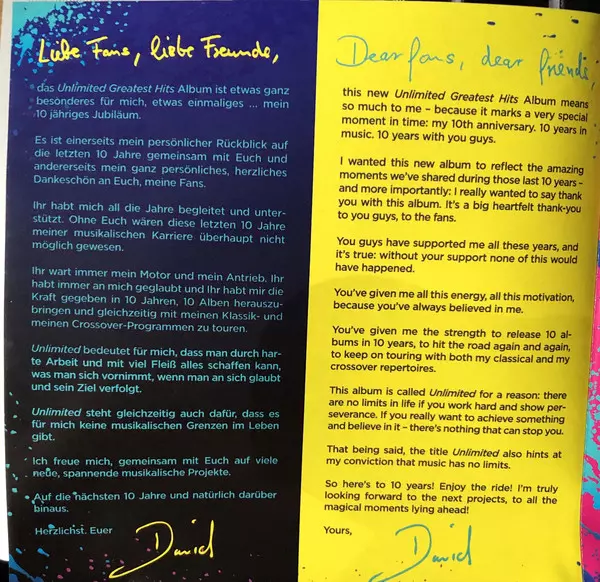 Liebe Fans, liebe Freunde,
das Unlimited Greatest Hits Album ist etwas ganz
besonderes für mich, etwas einmaliges ... mein
10 jähriges Jubiläum.
Es ist einerseits mein persönlicher Rückblick auf
die letzten 10 Jahre gemeinsam mit Euch und
andererseits mein ganz persönliches, herzliches
Dankeschön an Euch, meine Fans.
Ihr habt mich all die Jahre begleitet und unter-
stützt. Ohne Euch wären diese letzten 10 Jahre
meiner musikalischen Karriere überhaupt nicht
möglich gewesen.
Ihr wart immer mein Motor und mein Antrieb. Ihr
habt immer an mich geglaubt und Ihr habt mir die
Kraft gegeben in 10 Jahren, 10 Alben herauszu-
bringen und gleichzeitig mit meinen Klassik- und
meinen Crossover-Programmen zu touren.
Unlimited bedeutet für mich, dass man durch har-
te Arbeit und mit viel Fleiß alles schaffen kann,
was man sich vornimmt, wenn man an sich glaubt
und sein Ziel verfolgt.
Unlimited steht gleichzeitig auch dafür, dass es
für mich keine musikalischen Grenzen im Leben
gibt.
Ich freue mich, gemeinsam mit Euch auf viele
neue, spannende musikalische Projekte.
Auf die nächsten 10 Jahre und natürlich darüber
hinaus.
Herzlichst. Euer
David
Dear fans, dear friends,
this new Unlimited Greatest Hits Album means
so much to me – because it marks a very special
moment in time: my 10th anniversary. 10 years in
music. 10 years with you guys.
I wanted this new album to reflect the amazing
moments we've shared during those last 10 years –
and more importantly: I really wanted to say thank
you with this album. It's a big heartfelt thank-you
to you guys, to the fans.
You guys have supported me all these years, and
it's true: without your support none of this would
have happened.
You've given me all this energy, all this motivation,
because you've always believed in me.
You've given me the strength to release 10 al-
bums in 10 years, to hit the road again and again,
to keep on touring with both my classical and my
crossover repertoires.
This album is called Unlimited for a reason: there
are no limits in life if you work hard and show per-
severance. If you really want to achieve something
and believe in it – there's nothing that can stop you.
That being said, the title Unlimited also hints at
my conviction that music has no limits.
So here's to 10 years! Enjoy the ride! I'm truly
looking forward to the next projects, to all the
magical moments lying ahead!
Yours,
David